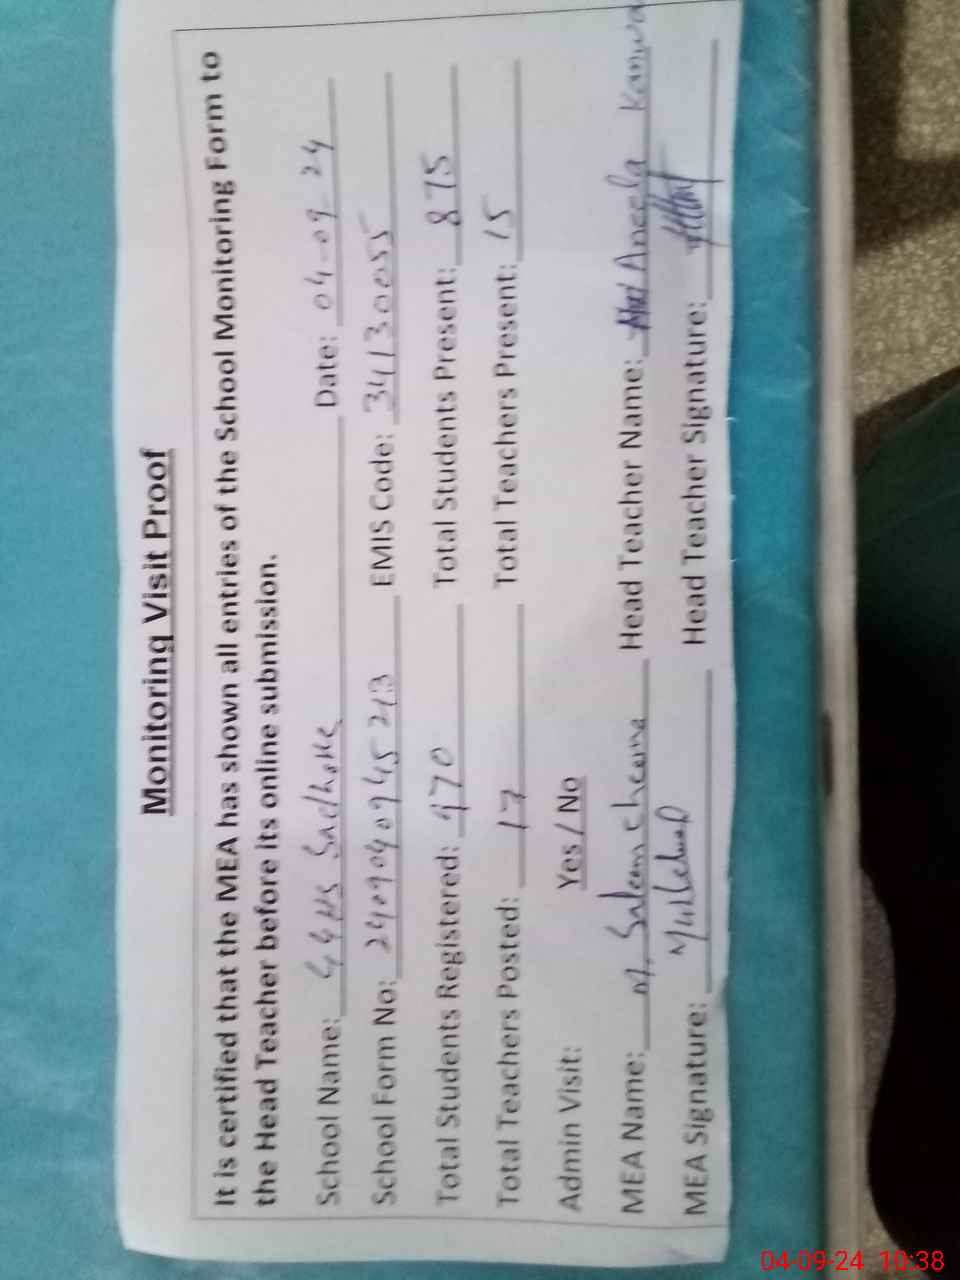 Monitoring Visit Proof
It is certified that the MEA has shown all entries of the School Monitoring Form to
the Head Teacher before its online submission.
School Name: GGHS Sadhoke Date: 04-09-24
School Form No: 2409040945213 EMIS Code: 34130055
Total Students Registered: 970 Total Students Present: 875
Total Teachers Posted: 17 Total Teachers Present: 15
Admin Visit: Yes / No
MEA Name: M. Saleem Cheema Head Teacher Name: Aneela Kanwa
MEA Signature: Head Teacher Signature:
04-09-24 10:38